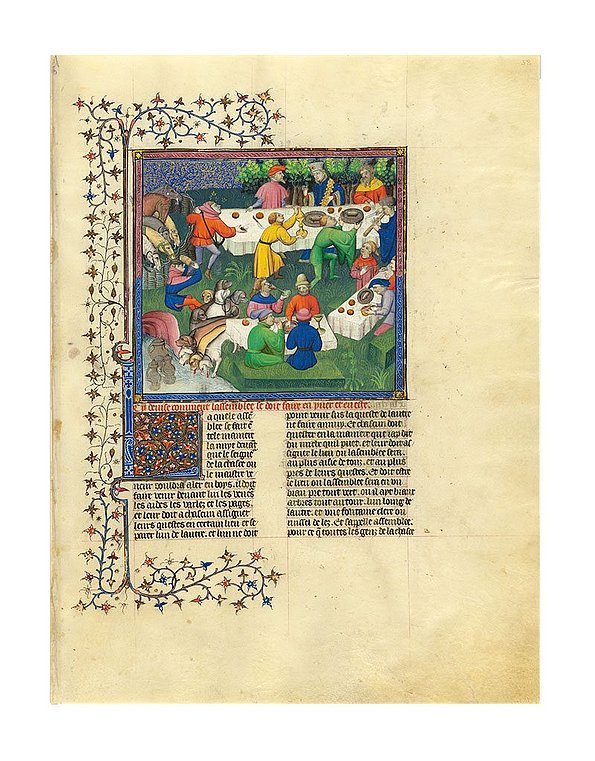 Cy devise comment lassemblee se doit faire en yver et en este.
aquele asse
blee se fait e
tele maniere
la nuyt devant
que le seigne
de la chasse ou
le maistre ve
neur voudra aler en boys. il doit
faire venir devant lui les venes
les aides les varlez et les pages.
et leur doit a chascun assigner
leurs questes en certain lieu et se
parer lun de lautre. et lun ne doit
point venir sus la queste de lautre
ne faire annuy. Et chascun doit
quester en la maniere que iay dit
du mieulz quil puet. et leur doit as
signer le lieu ou lasemblee sera
au plus aise de touz. et au plus
pres de leurs questes. Et doit estre
le lieu ou lassemblee sera en un
biau pre tout vert. ou il ayt biaux
arbres tout au tour. lun loing de
lautre. et une fontaine clere ou
ruissel de lez. Et sapelle assemblee.
pour ce que toutes les genz de la chasse